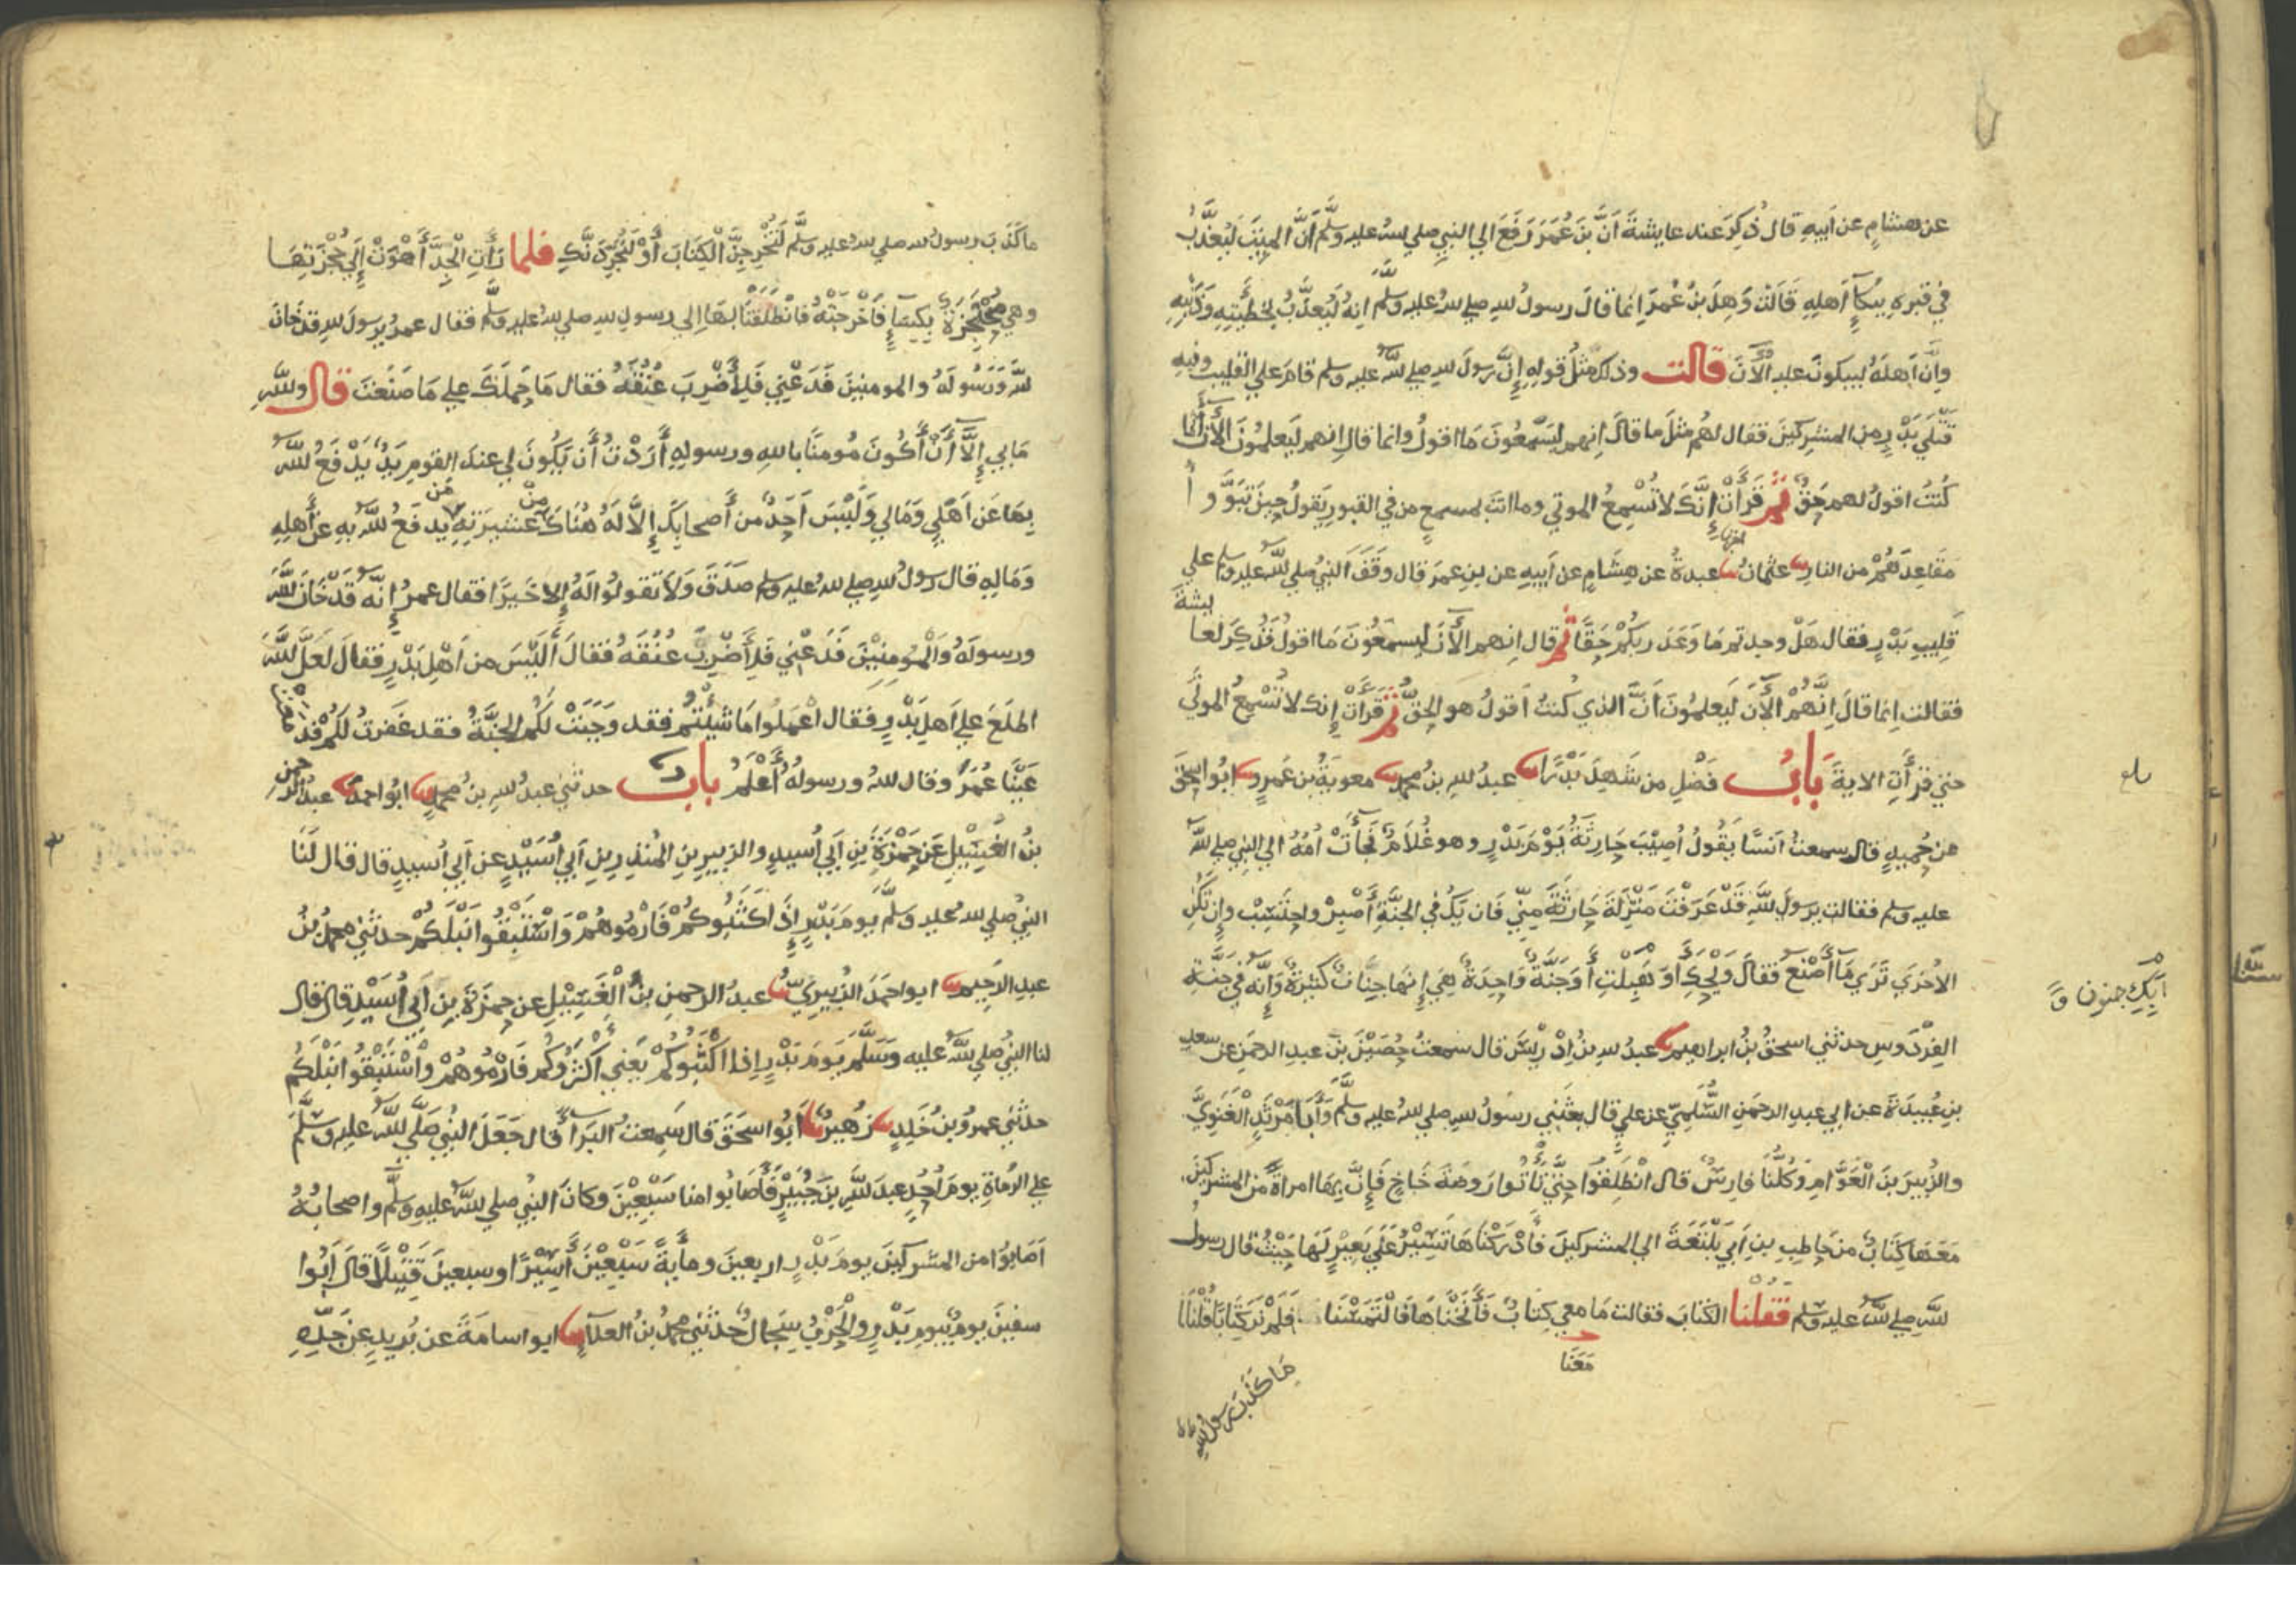 عن هشام عن أبيه قال ذكر عند عايشة أن بن عمر رفع الي النبي صلي لله عليه وسلم أن الميت ليعذب
في قبره ببكاء أهله قالت وهل بن عمر انما قال رسول لله صلي لله عليه وسلم انه ليعذب بخطيئته وذنبه
وإن أهله ليبكون عليه الآن قالت وذلك مثل قوله إن رسول لله صلي لله عليه وسلم قام علي القليب وفيه
قتلي بدر من المشركين فقال لهم مثل ما قال انهم ليسمعون ما اقول وانما قال انهم ليعلمون الآن أنما
كنت اقول لهم حق ثم قرأت إنك لا تسمع الموتي وما انت بمسمع من في القبور يقول حين تبوؤا
مقاعدهم من النار عثمان عبدة عن هشام عن أبيه عن بن عمر قال وقف النبي صلي لله عليه وسلم علي
قليب بدر فقال هل وجدتم ما وعد ربكم حقا ثم قال انهم الآن ليسمعون ما اقول فذكر لعايشة
فقالت انما قال انهم الآن ليعلمون أن الذي كنت اقول هو الحق ثم قرأت إنك لا تسمع الموتي
حتي قرأت الاية باب فضل من شهد بدرا عبد لله بن محمد معوية بن عمرو ابو اسحق
عن حميد قال سمعت أنسا يقول أصيب حارثة يوم بدر وهو غلام فجأت امه الي النبي صلي لله
عليه وسلم فقالت يرسول لله قد عرفت منزلة حارثة مني فان يك في الجنة أصبر واحتسب وإن تكن
الاخري تري ما أصنع فقال ويحك أو هبلت أو جنة واحدة هي إنها جنان كثيرة وإنه في جنة
الفردوس حدثني اسحق بن ابراهيم عبد لله بن ادريس قال سمعت حصين بن عبد الرحمن عن سعد
بن عبيدة عن ابي عبد الرحمن السلمي عن علي قال بعثني رسول لله صلي لله عليه وسلم وأبا مرثد الغنوي
والزبير بن العوام وكلنا فارس قال انطلقوا حتي تأتوا روضة خاخ فإن بها امراة من المشركين
معها كتاب من حاطب بن أبي بلتعة الي المشركين فأدركناها تسير علي بعير لها حيث قال رسول
لله صلي لله عليه وسلم فقلنا الكتاب فقالت ما معي كتاب فأنخناها فالتمسنا فلم نر كتابا فقلنا
معنا
ما كذب رسول لله
ما كذب رسول لله صلي لله عليه وسلم لتخرجن الكتاب أو لنجردنك فلما رأت الجد أهوت إلي حجزتها
وهي محتجزة بكساء فأخرجته فانطلقنا بها إلي رسول لله صلي لله عليه وسلم فقال عمر يرسول لله قد خان
لله ورسوله والمومنين فدعني فلأضرب عنقه فقال ما حملك علي ما صنعت قال ولله
ما بي إلا أن أكون مومنا بالله ورسوله أردت أن يكون لي عند القوم يد يدفع لله
بها عن أهلي ومالي وليس احد من أصحابك إلا له هناك من عشيرته من يدفع لله به عن أهله
وماله قال رسول لله صلي لله عليه وسلم صدق ولا تقولوا له إلا خيرا فقال عمر إنه قد خان لله
ورسوله والمومنين فدعني فلأضرب عنقه فقال أليس من أهل بدر فقال لعل لله
اطلع علي أهل بدر فقال اعملوا ما شئتم فقد وجبت لكم الجنة فقد غفرت لكم فدمعت
عينا عمر وقال لله ورسوله أعلم باب حدثني عبد لله بن محمد ابو احمد عبد الرحمن
بن الغسيل عن حمزة بن أبي أسيد والزبير بن المنذر بن أبي أسيد عن أبي أسيد قال قال لنا
النبي صلي لله عليه وسلم يوم بدر إذا اكثبوكم فارموهم واستبقوا نبلكم حدثني محمد بن
عبد الرحيم ابو احمد الزبيري عبد الرحمن بن الغسيل عن حمزة بن أبي أسيد قال قال
لنا النبي صلي لله عليه وسلم يوم بدر إذا اكثبوكم يعني أكثروكم فارموهم واستبقوا نبلكم
حدثني عمرو بن خلد زهير أبو اسحق قال سمعت البرا قال جعل النبي صلي لله عليه وسلم
علي الرماة يوم أحد عبد لله بن جبير فأصابوا منا سبعين وكان النبي صلي لله عليه وسلم واصحابه
اصابوا من المشركين يوم بدر اربعين ومأية سبعين أسيرا وسبعين قتيلا قال أبوا
سفين يوم بيوم بدر والحرب سجال حدثني محمد بن العلاء ابو اسامة عن بريد عن جده